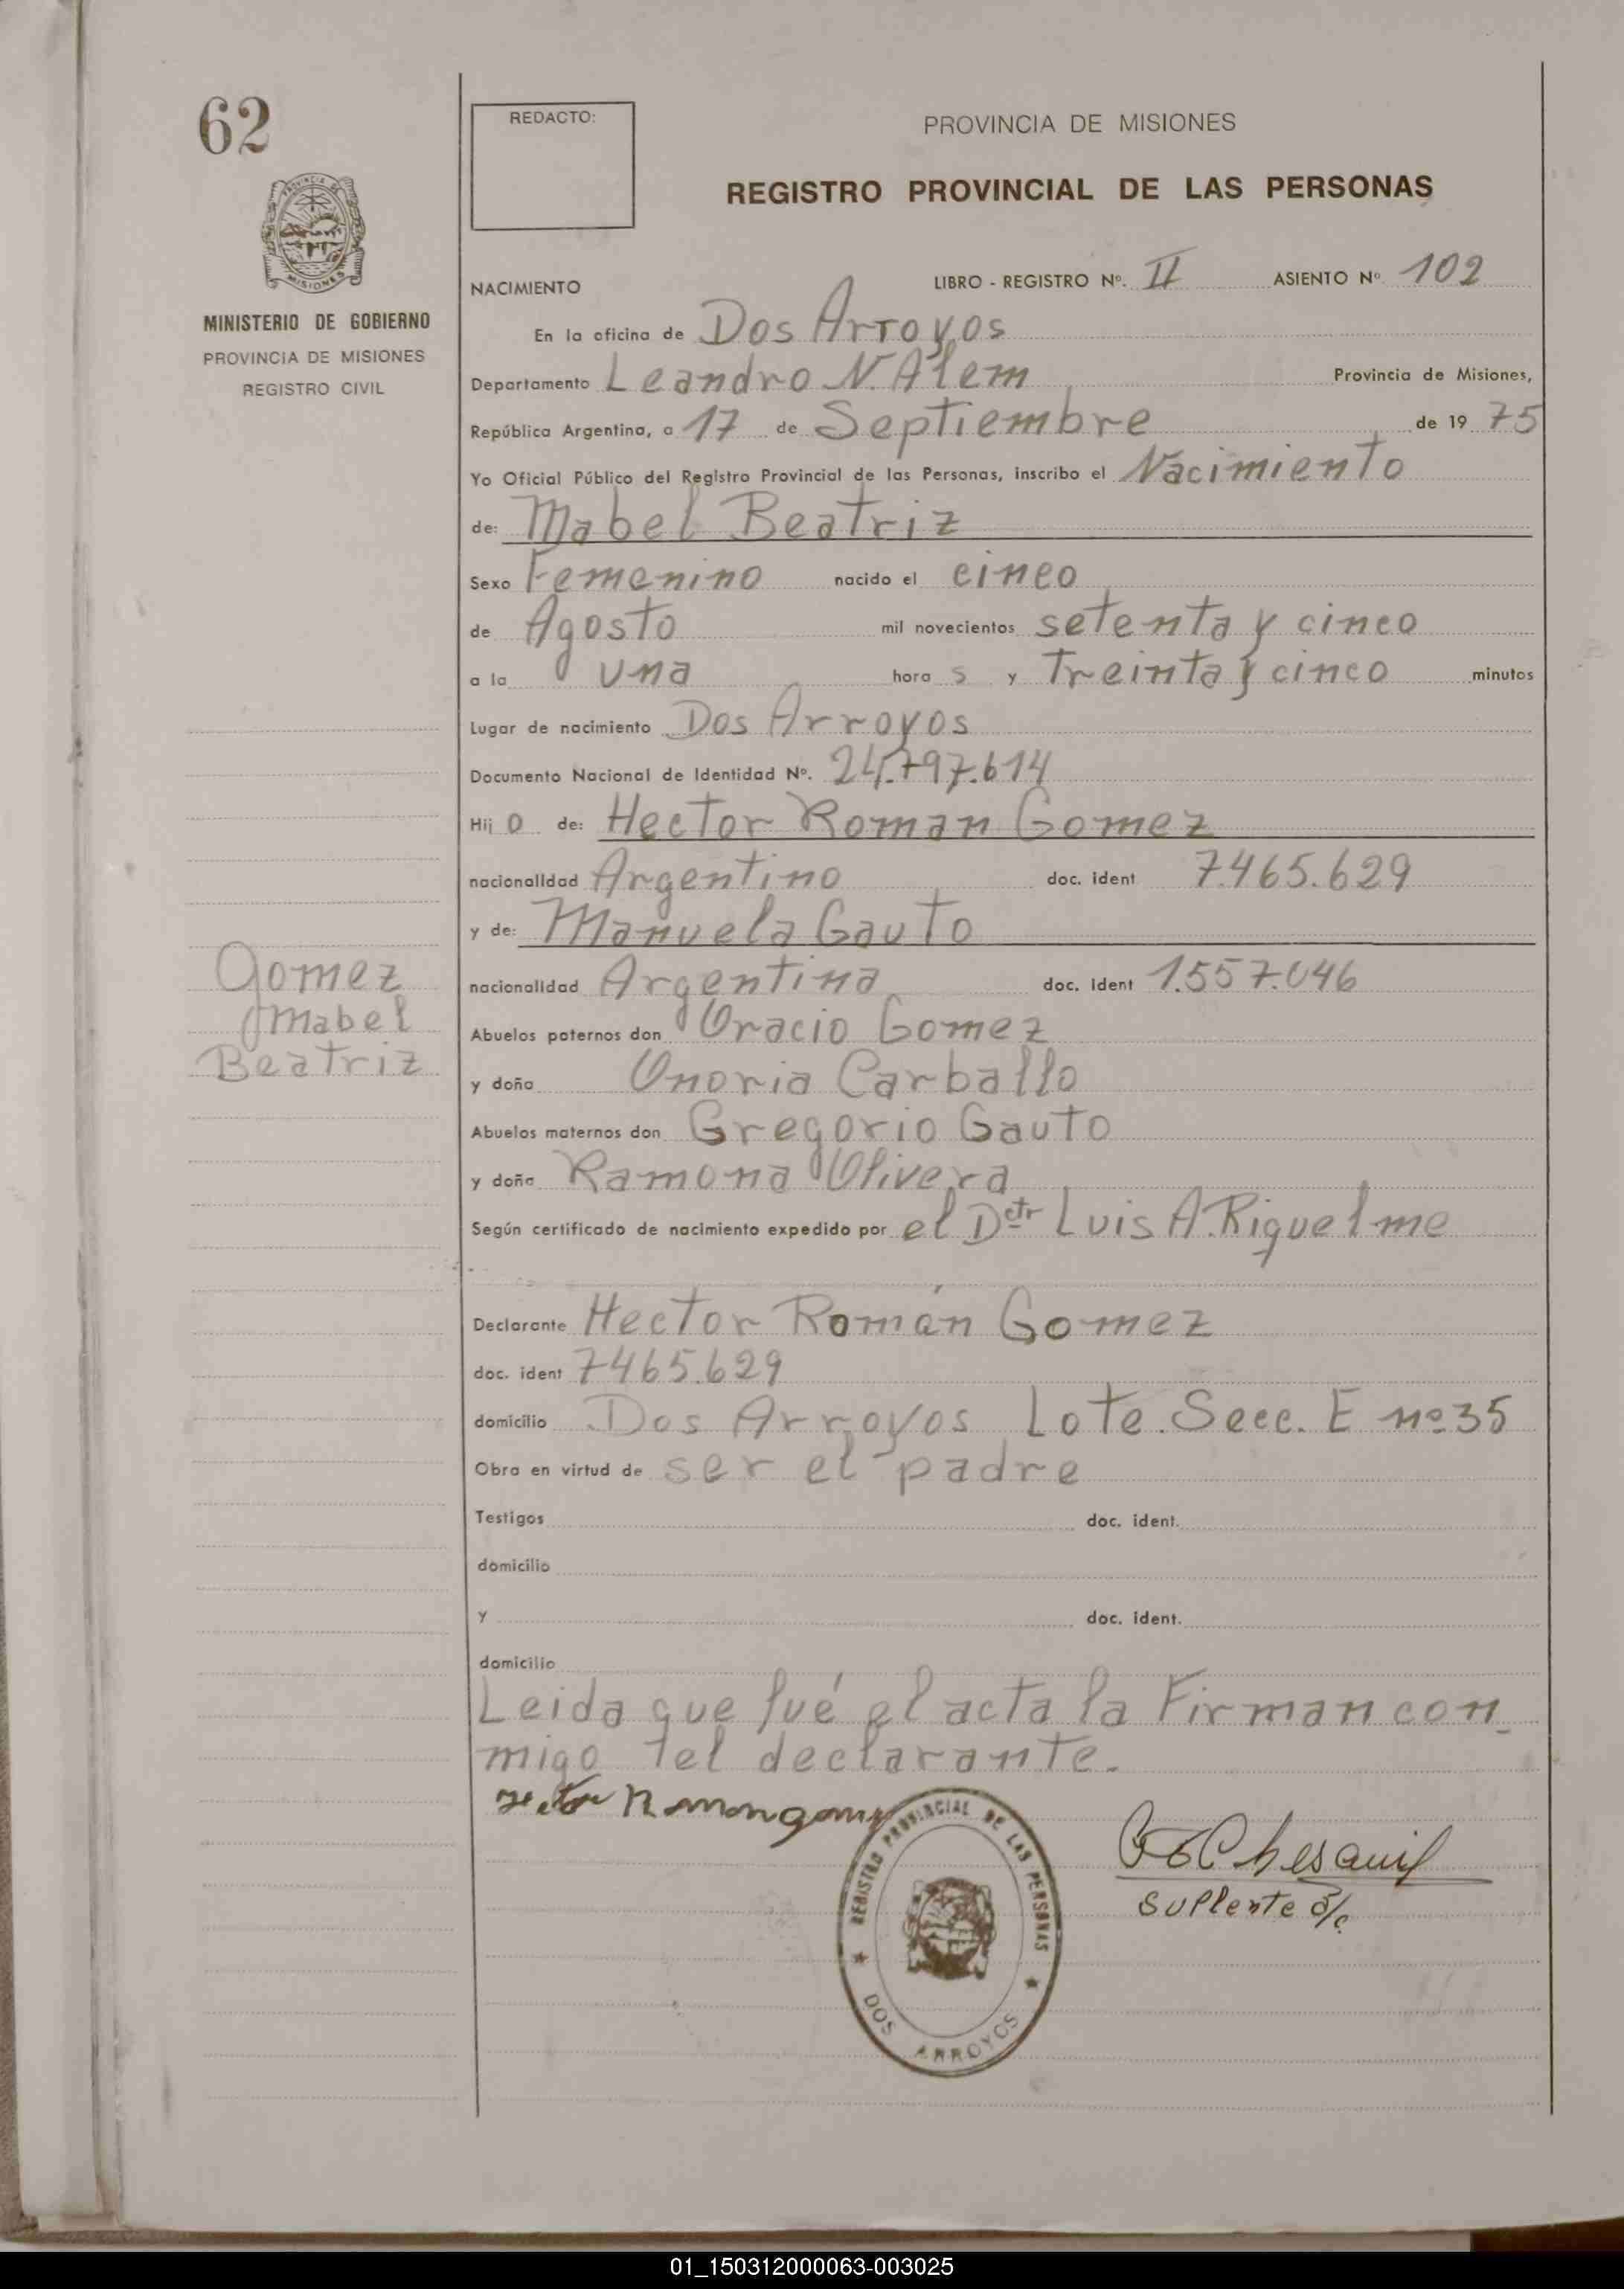 62
REDACTO:
PROVINCIA DE MISIONES
REGISTRO PROVINCIAL DE LAS PERSONAS
PROVINCIA DE MISIONES
MINISTERIO DE GOBIERNO
PROVINCIA DE MISIONES
REGISTRO CIVIL
NACIMIENTO LIBRO - REGISTRO Nº. II ASIENTO Nº. 102
En la oficina de Dos Arroyos
Departamento Leandro N. Alem Provincia de Misiones,
República Argentina, a 17 de Septiembre de 19 75
Yo Oficial Público del Registro Provincial de las Personas, inscribo el Nacimiento
de: Mabel Beatriz
Sexo Femenino nacido el cinco
de Agosto mil novecientos setenta y cinco
a la una hora s y Treinta y cinco minutos
Lugar de nacimiento Dos Arroyos
Documento Nacional de Identidad Nº. 24.797.614
Hij o de: Hector Roman Gomez
nacionalidad Argentino doc. ident 7.465.629
y de: Manuela Gauto
nacionalidad Argentina doc. ident 1.557.046
Abuelos paternos don Oracio Gomez
y doña Onoria Carballo
Abuelos maternos don Gregorio Gauto
y doña Ramona Olivera
Según certificado de nacimiento expedido por el Dctr Luis A. Riquelme
Declarante Hector Román Gomez
doc. ident 7465.629
domicilio Dos Arroyos Lote. Secc. E nº 35
Obra en virtud de ser el padre
Testigos doc. ident.
domicilio
y doc. ident.
domicilio
Leida que fué el acta la Firman con
migo tel declarante.
Gomez
Mabel
Beatriz
REGISTRO PROVINCIAL DE LAS PERSONAS
DOS ARROYOS
Suplente a/c
01_150312000063-003025